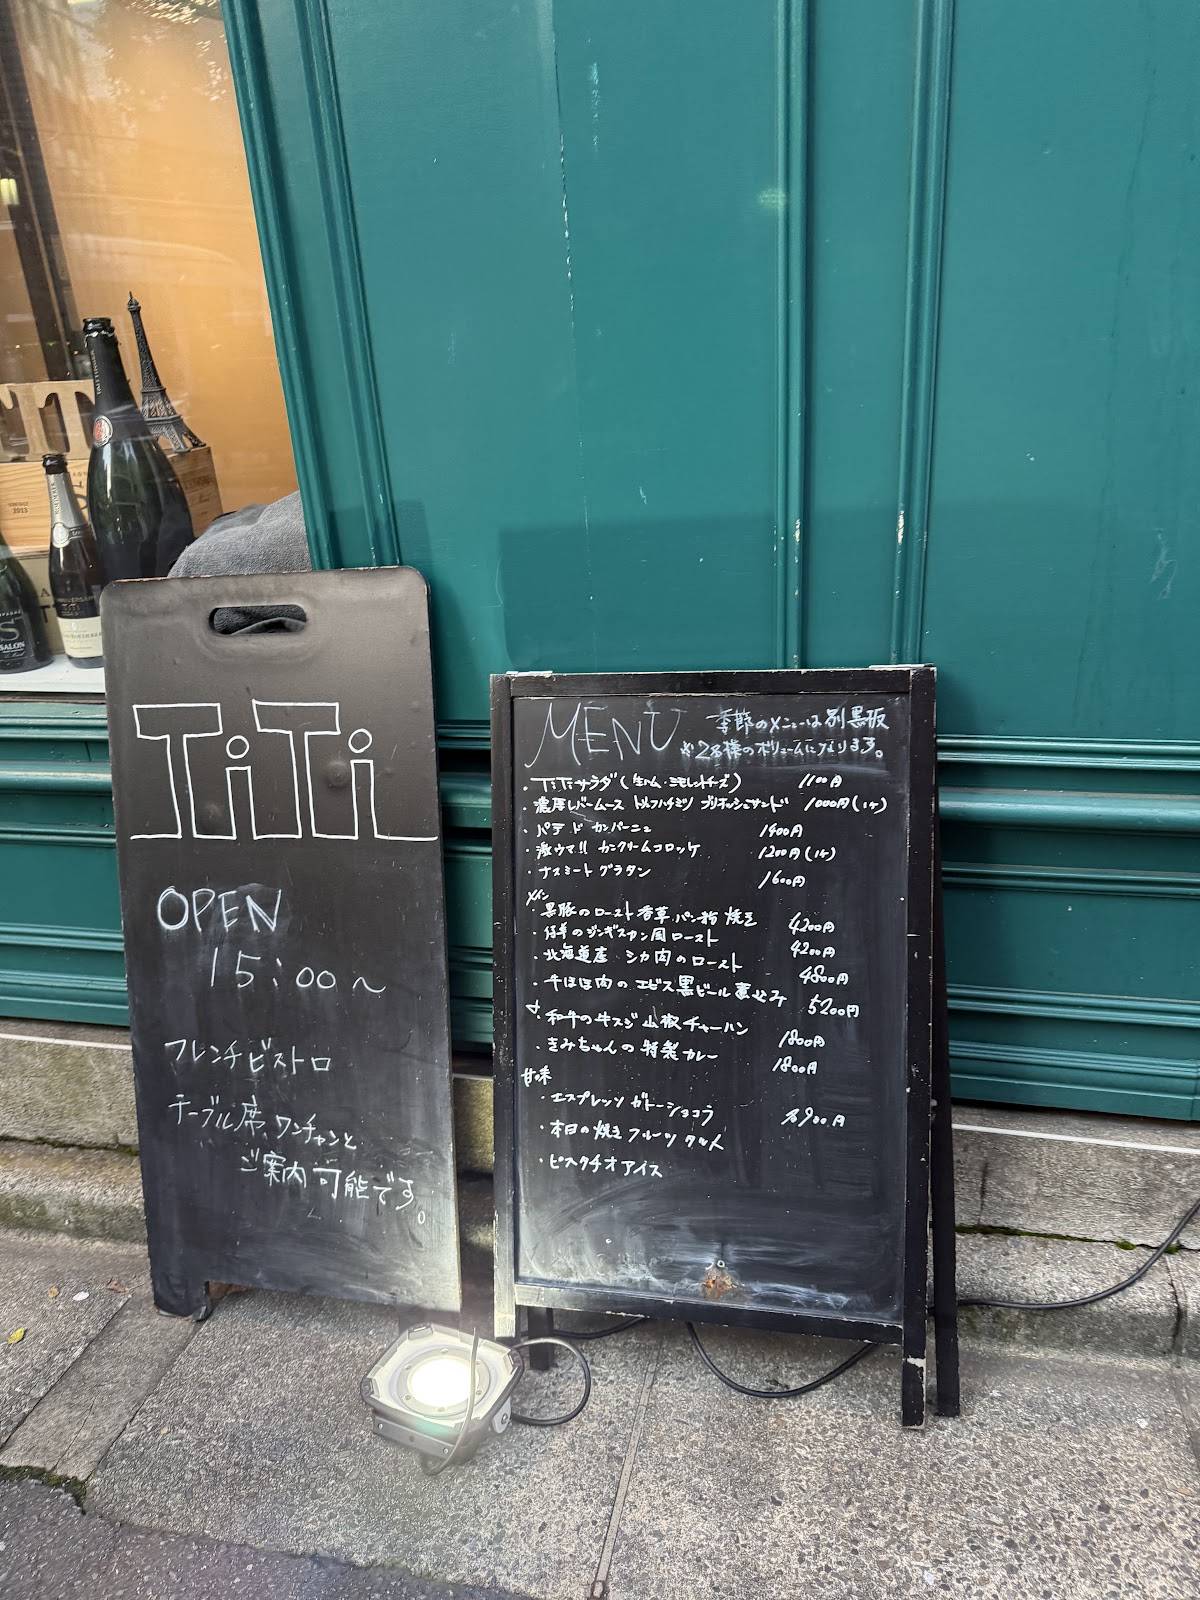 TiTi
OPEN
15:00〜
フレンチビストロ
テーブル席、ワンチャンと
ご案内可能です。
MENU
季節のメニューは別黒板
※2名様のボリュームになります。
・TiTiサラダ(生ハム・ミモレットチーズ) 1100円
・濃厚レバームース トリュフハチミツ ブリオッシュサンド 1000円(1ヶ)
・パテ ド カンパーニュ 1400円
・激ウマ!! カニクリームコロッケ 1200円(1ヶ)
・ナスミート グラタン 1600円
メイン
・黒豚のロースト 香草パン粉 焼き 4200円
・仔羊のジンギスカン風ロースト 4200円
・北海道産 シカ肉のロースト 4800円
・牛ほほ肉の エビス黒ビール煮込み 5200円
・和牛の牛スジ 山椒チャーハン 1800円
・きみちゃんの 特製カレー 1800円
甘味
・エスプレッソ ガトーショコラ
・本日の焼き フルーツタルト
・ピスタチオアイス
900円
SALON
2013